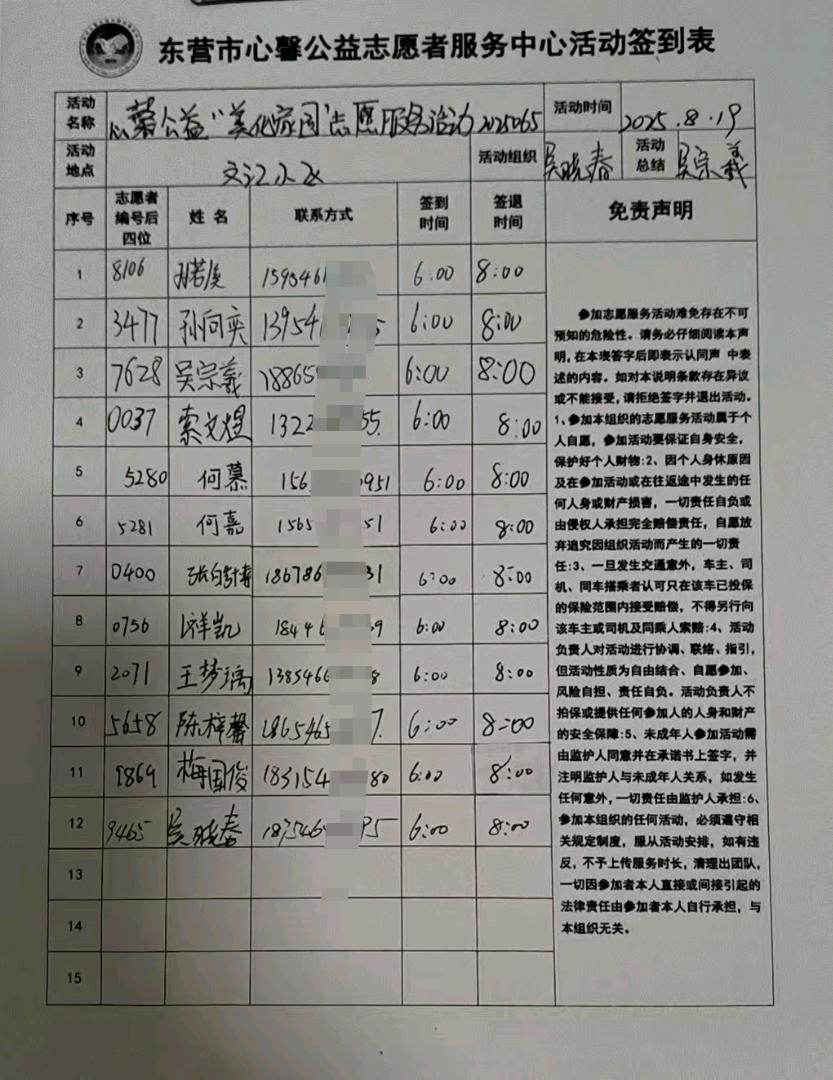 东营市心馨公益志愿者服务中心活动签到表
活动名称 心馨公益“美化家园”志愿服务活动2025065 活动时间 2025.8.19
活动地点 文汇 活动组织 吴晓春 活动总结 吴宗羲
序号 志愿者编号后四位 姓名 联系方式 签到时间 签退时间 免责声明
1 8106 159546 6:00 8:00
2 3477 孙向奕 13954 5 6:00 8:00
3 7628 吴宗羲 18865 6:00 8:00
4 0037 索文煜 1322 55. 6:00 8:00
5 5280 何慕 156 0951 6:00 8:00
6 5281 何嘉 1565 51 6:00 8:00
7 0400 186786 31 6:00 8:00
8 0756 祥凯 1844 9 6:00 8:00
9 2071 王梦瑀 1385466 8 6:00 8:00
10 5658 陈梓馨 1865465 7. 6:00 8:00
11 9869 梅国俊 183154 80 6:00 8:00
12 9465 吴晓春 1875464 95 6:00 8:00
13
14
15
参加志愿服务活动难免存在不可
预知的危险性。请务必仔细阅读本声
明,在本表签字后即表示认同声 中表
述的内容。如对本说明条款存在异议
或不能接受,请拒绝签字并退出活动。
1、参加本组织的志愿服务活动属于个
人自愿,参加活动要保证自身安全,
保护好个人财物:2、因个人身体原因
及在参加活动或在往返途中发生的任
何人身或财产损害,一切责任自负或
由侵权人承担完全赔偿责任,自愿放
弃追究因组织活动而产生的一切责
任:3、一旦发生交通意外,车主、司
机、同车搭乘者认可只在该车已投保
的保险范围内接受赔偿,不得另行向
该车主或司机及同乘人索赔:4、活动
负责人对活动进行协调、联络、指引,
但活动性质为自由结合、自愿参加、
风险自担、责任自负。活动负责人不
担保或提供任何参加人的人身和财产
的安全保障:5、未成年人参加活动需
由监护人同意并在承诺书上签字,并
注明监护人与未成年人关系,如发生
任何意外,一切责任由监护人承担:6、
参加本组织的任何活动,必须遵守相
关规定制度,服从活动安排,如有违
反,不予上传服务时长,清理出团队,
一切因参加者本人直接或间接引起的
法律责任由参加者本人自行承担,与
本组织无关。